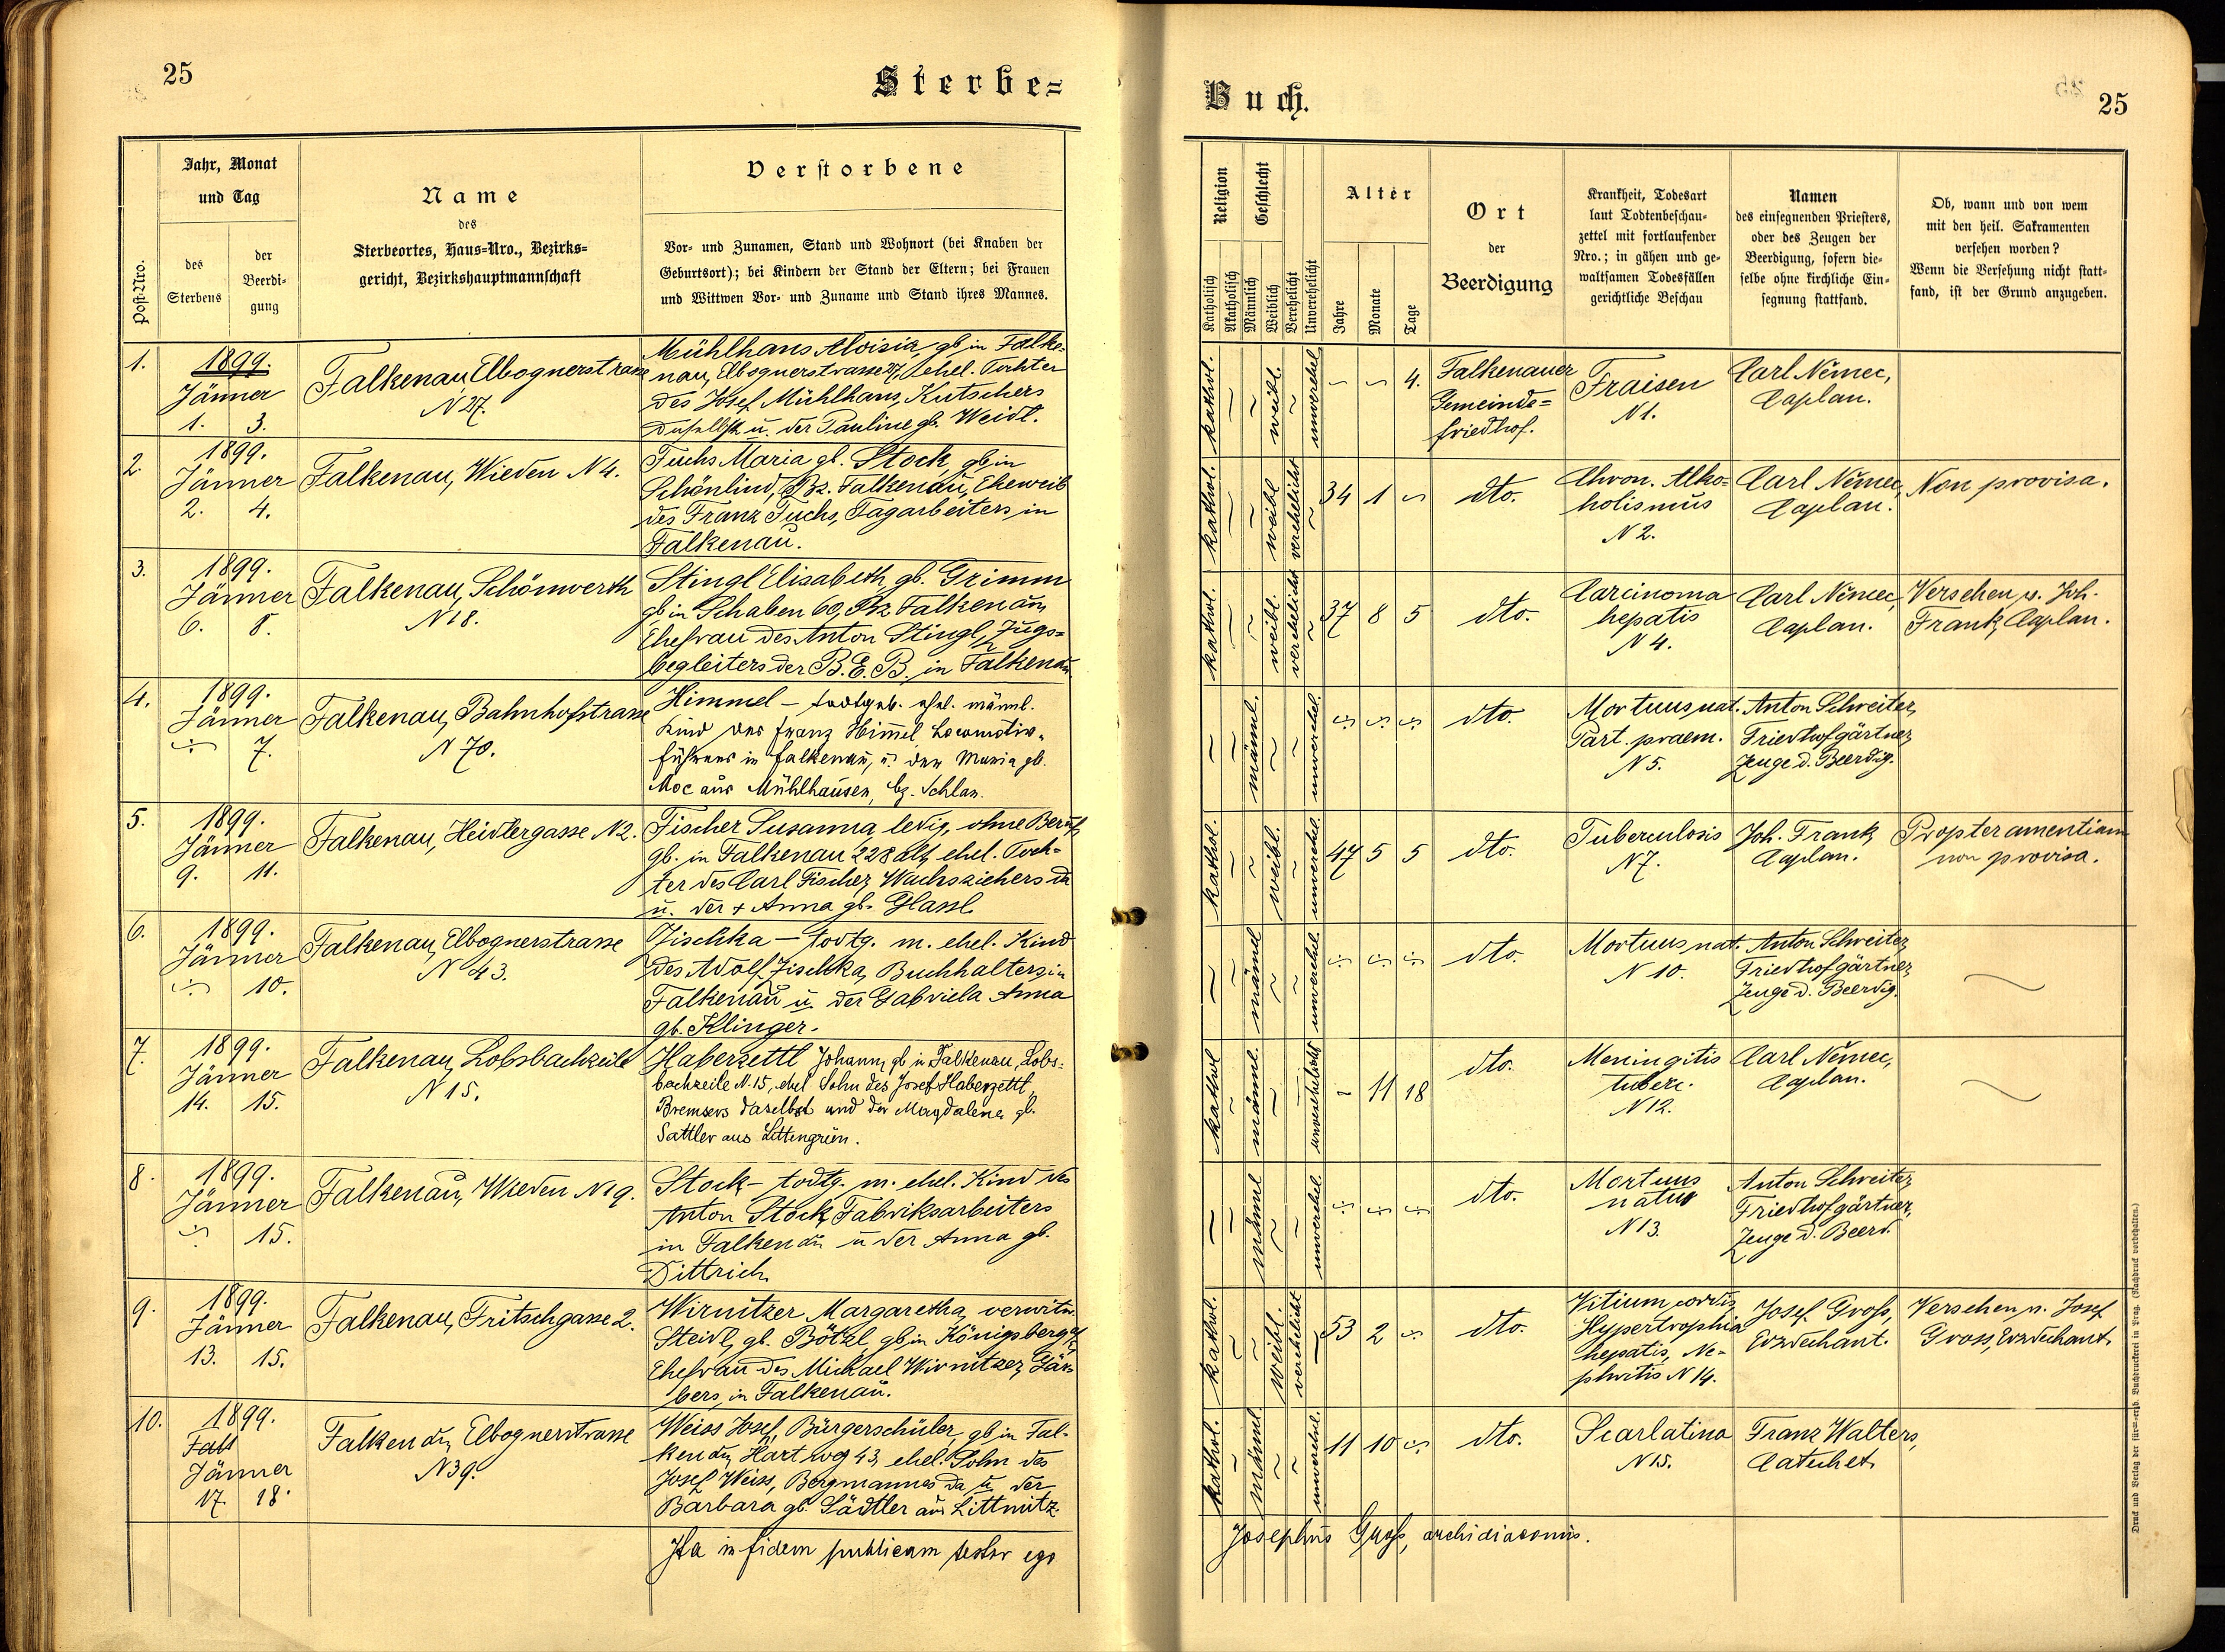 25
Sterbe=
Post-Nro.
Jahr, Monat
und Tag
des
Sterbens
der
Beerdi-
gung
Name
des
Sterbeortes, Haus-Nro., Bezirks=
gericht, Bezirkshauptmannschaft
Verstorbene
Vor- und Zunamen, Stand und Wohnort (bei Knaben der
Geburtsort); bei Kindern der Stand der Eltern; bei Frauen
und Wittwen Vor- und Zuname und Stand ihres Mannes.
1.
1899.
Jänner
1. 3.
Falkenau, Elbognerstrasse
N 27.
Mühlhans Aloisia, gb in Falke-
nau, Elbognerstrasse 27, ehel. Tochter
des Josef Mühlhans, Kutschers
daselbst u. der Pauline gb. Weidl.
2.
1899.
Jänner
2. 4.
Falkenau, Wieden N 4.
Fuchs Maria gb. Stock, gb in
Schönlind, Bz. Falkenau, Eheweib
des Franz Fuchs, Tagarbeiters in
Falkenau.
3.
1899.
Jänner
6. 8.
Falkenau, Schönwerth
N 18.
Stingl Elisabeth gb. Grimm
gb in Schaben 60, Bz Falkenau,
Ehefrau des Anton Stingl, Zugs=
begleiters der B. E. B. in Falkenau
4.
1899.
Jänner
7.
Falkenau, Bahnhofstrasse
N 70.
Himmel – todtgeb. ehel. männl.
Kind des Franz Himmel Locomotiv-
führers in Falkenau, u. der Maria gb.
Moc aus Mühlhausen, bz. Schlan.
5.
1899.
Jänner
9. 11.
Falkenau, Heidlergasse N 2.
Fischer Susanna, ledig, ohne Beruf,
gb. in Falkenau 228 alt, ehel. Toch-
ter des Carl Fischer, Wachsziehers da
u. der + Anna gb. Glassl
6.
1899.
Jänner
10.
Falkenau, Elbognerstrasse
N 43.
Zischka – todtg. m. ehel. Kind
des Adolf Zischka, Buchhalters in
Falkenau u. der Gabriela Anna
gb. Klinger.
7.
1899.
Jänner
14. 15.
Falkenau, Lobsbachzeile
N 15.
Haberzettl Johann, gb in Falkenau, Lobs-
bachzeile N. 15, ehel Sohn des Josef Haberzettl,
Bremsers daselbst und der Magdalena gb.
Sattler aus Littengrün.
8.
1899.
Jänner
15.
Falkenau, Wieden N 19.
Stock – todtg. m. ehel. Kind des
Anton Stock, Fabriksarbeiters
in Falkenau u der Anna gb.
Dittrich
9.
1899.
Jänner
13. 15.
Falkenau, Fritschgasse 2.
Wirnitzer Margaretha, verwitw.
Steidl, gb. Bötzl, gb in Königsberg
Ehefrau des Michael Wirnitzer, Fär-
bers, in Falkenau.
10.
1899.
Jänner
17. 18.
Falkenau, Elbognerstrasse
N 39.
Weiss Josef, Bürgerschüler, gb in Fal-
kenau, Hartweg 43, ehel. Sohn des
Josef Weiss, Bergmannes da u. der
Barbara gb. Sädtler aus Littmitz.
Ita in fidem publicam testor ego
Buch.
25
Religion
Katholisch
Akatholisch
Geschlecht
Männlich
Weiblich
Verehelicht
Unverehelicht
Alter
Jahre
Monate
Tage
Ort
der
Beerdigung
Krankheit, Todesart
laut Todtenbeschau-
zettel mit fortlaufender
Nro.; in gähen und ge-
waltsamen Todesfällen
gerichtliche Beschau
Namen
des einsegnenden Priesters,
oder des Zeugen der
Beerdigung, sofern die-
selbe ohne kirchliche Ein-
segnung stattfand.
Ob, wann und von wem
mit den heil. Sakramenten
versehen worden?
Wenn die Versehung nicht statt-
fand, ist der Grund anzugeben.
kathol. weibl. unverehel. 4.
Falkenauer
Gemeinde=
friedhof.
Fraisen
N 1.
Carl Němec,
Caplan.
kathol. weibl verehelicht 34 1
dto.
Chron. Alko-
holismus
N 2.
Carl Němec,
Caplan.
Non provisa.
kathol. weibl. verehelicht 37 8 5
dto.
Carcinoma
hepatis
N 4.
Carl Němec,
Caplan.
Versehen v. Joh.
Frank, Caplan.
männl. unverehel.
dto.
Mortuus nat.
Part. praem.
N 5.
Anton Schreiter,
Friedhofgärtner,
Zeuge d. Beerdig.
kathol. weibl. unverehel. 47 5 5
dto.
Tuberculosis
N 7.
Joh. Frank,
Caplan.
Propter amentiam
non provisa.
männl unverehel.
dto.
Mortuus nat.
N 10.
Anton Schreiter,
Friedhofgärtner,
Zeuge d. Beerdig.
kathol männl. unverehelicht 11 18
dto.
Meningitis
tuberc.
N 12.
Carl Němec,
Caplan.
männl unverehel.
dto.
Mortuus
natus
N 13.
Anton Schreiter,
Friedhofgärtner,
Zeuge d. Beerd.
kathol. weibl. verehelicht 53 2
dto.
Vitium cordis,
Hypertrophia
hepatis, Ne-
phritis N 14.
Josef Gross,
Erzdechant.
Versehen v. Josef
Gross, Erzdechant.
kathol. männl. unverehel. 11 10
dto.
Scarlatina
N 15.
Franz Walters,
Catechet.
Josephus Gross, archidiaconus.
Druck und Verlag der fürst-erzb. Buchdruckerei in Prag. (Nachdruck vorbehalten.)